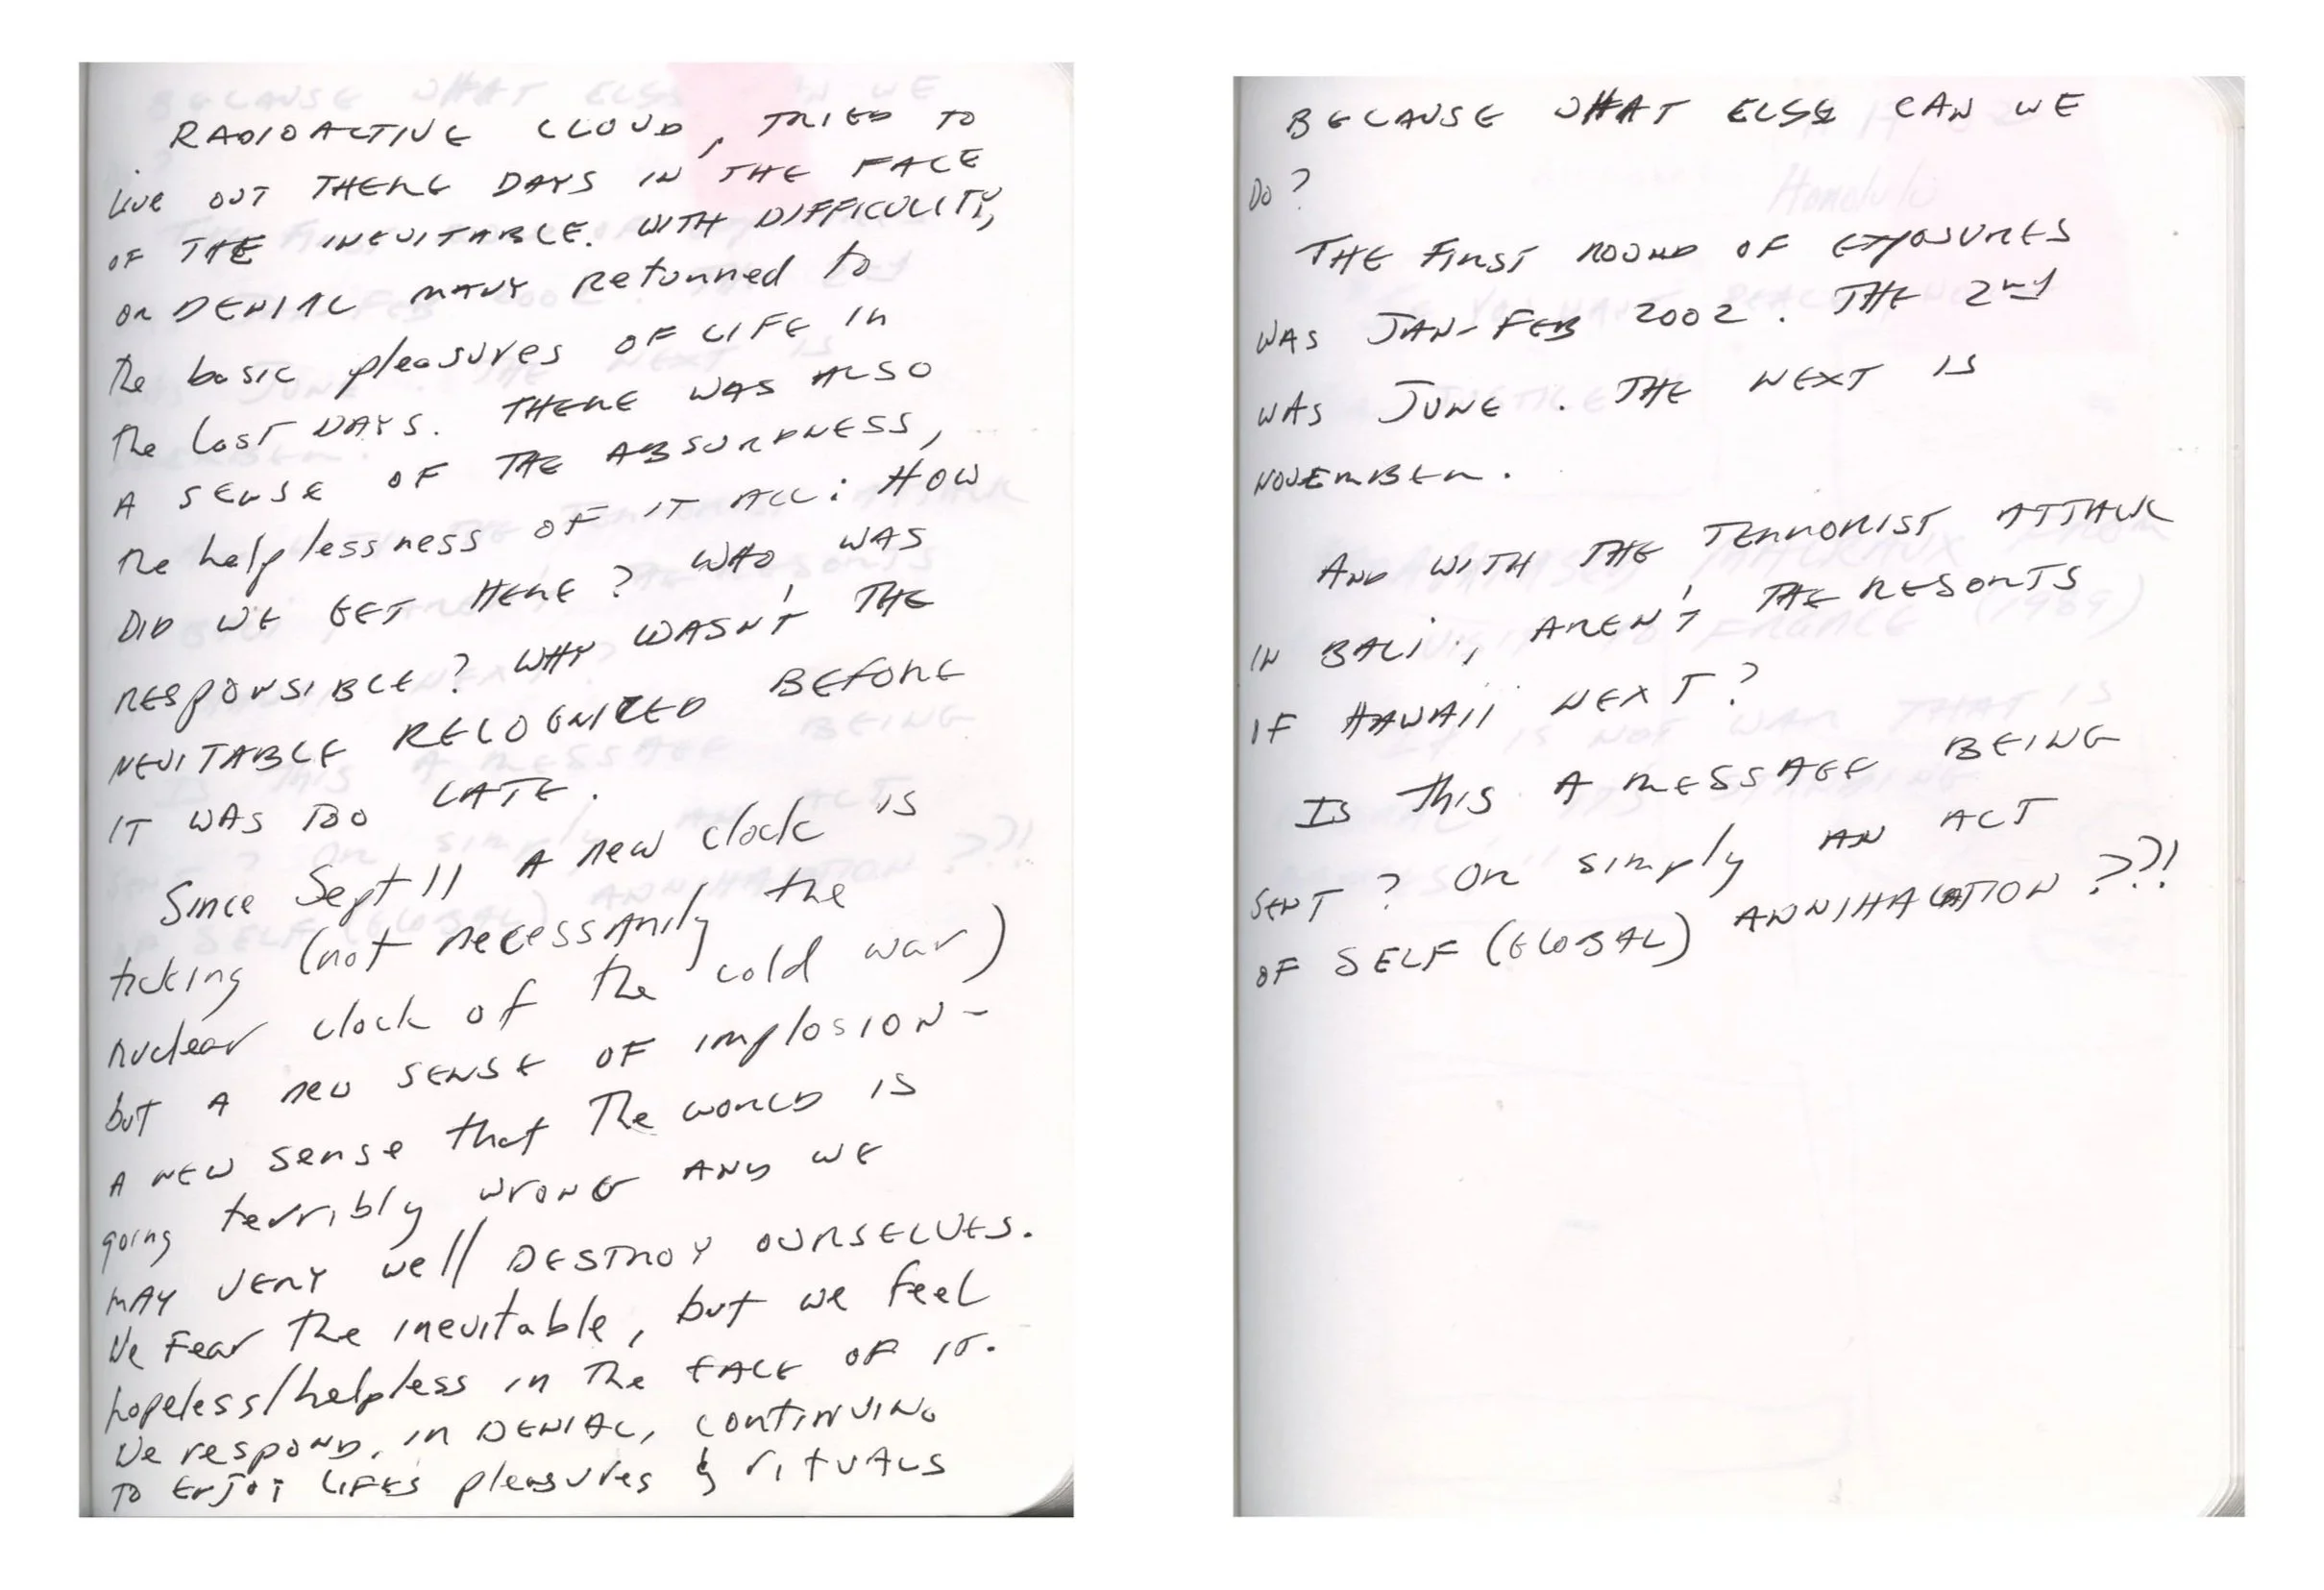 RADIOACTIVE CLOUD, TRIED TO
Live OUT THERE DAYS IN THE FACE
OF THE INEVITABLE. WITH DIFFICULITY,
OR DENIAL MANY returned to
The basic pleasures OF LIFE In
The Last DAYS. THERE WAS ALSO
A SENSE OF THE ABSURDNESS,
The helplessness OF IT ALL: HOW
DID WE GET HERE? WHO WAS
RESPONSIBLE? WHY WASN'T THE
NEVITABLE RECOGNIZED BEFORE
IT WAS TOO LATE.
Since Sept 11 A new clock is
ticking (not necessarily the
nuclear clock of the cold war)
but A new SENSE OF implosion-
A NEW sense that The WORLD IS
going terribly wrong AND WE
MAY VERY well DESTROY OURSELVES.
We Fear The inevitable, but we feel
hopeless/helpless in The FACE OF IT.
We respond, in DENIAL, CONTINUING
TO ENJOY LIFES pleasures & rituals
BECAUSE WHAT ELSE CAN WE
Do?
THE FIRST ROUND OF EXPOSURES
WAS JAN-FEB 2002. THE 2nd
WAS JUNE. THE NEXT IS
NOVEMBER.
AND WITH THE TERRORIST ATTACK
IN BALi, AREN'T THE RESORTS
IF HAWAII NEXT?
Is This A MESSAGE BEING
SENT? OR simply AN ACT
OF SELF (GLOBAL) ANNIHALATION???!